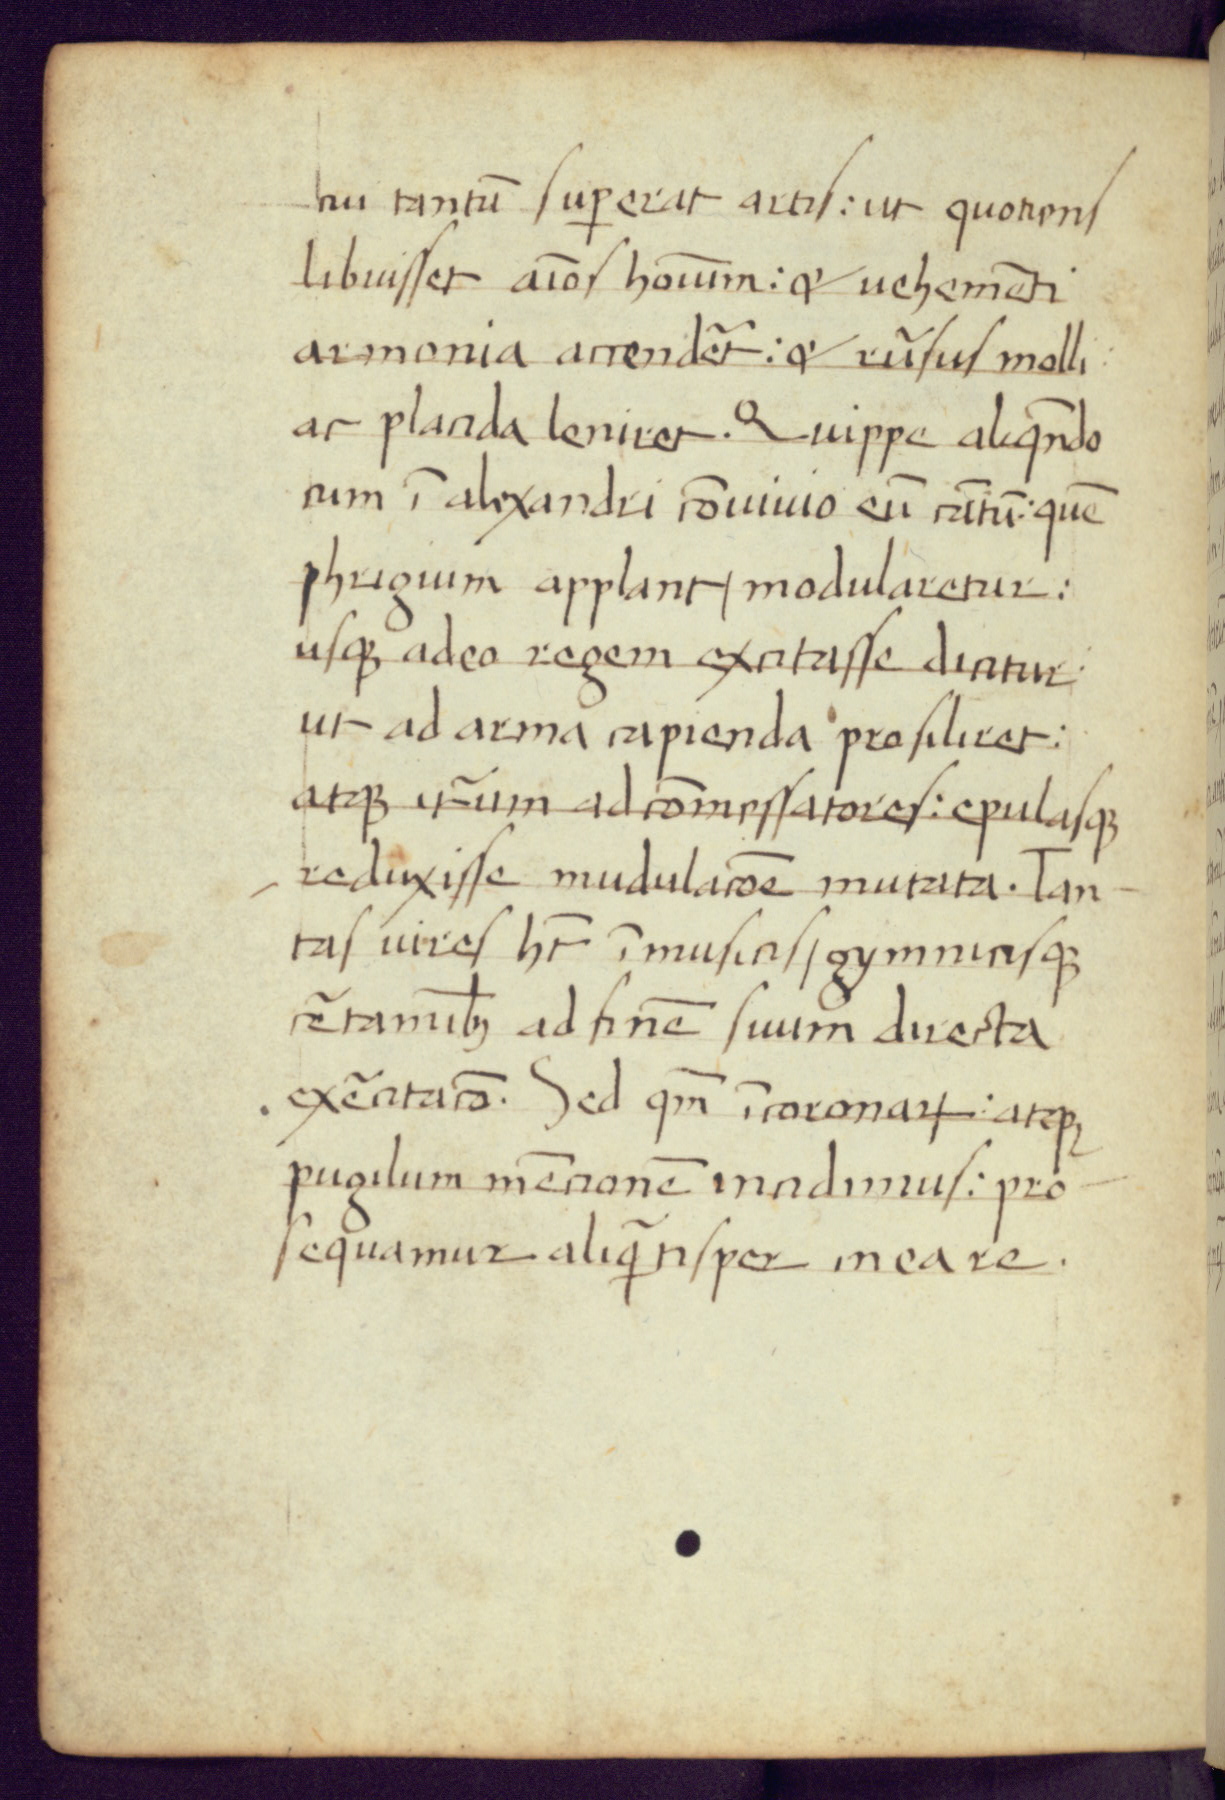 cui tantū superat artis: ut quotiens
libuisset aīos hoīum: & uehemēti
armonia accendēt: & rūsus molli
ac placida leniret. Quippe aliqn̄do
cum ī alexandri cōuiuio eū cātū: quē
phrigium applant / modularetur:
usqꝫ adeo regem excitasse dicitur:
ut ad arma capienda prosiliret:
atqꝫ it̄um ad cōmessatores: epulasqꝫ
reduxisse mudulacōe mutata. Tan-
tas uires ht̄ ī musicis / gymnicisqꝫ
cētamībꝫ ad finē suum directa
exēcitacō. Sed qm̄ ī coronarꝝ: atqꝫ
pugilum mēcionē incidimus: pro-
sequamur aliqātisper in ea re.